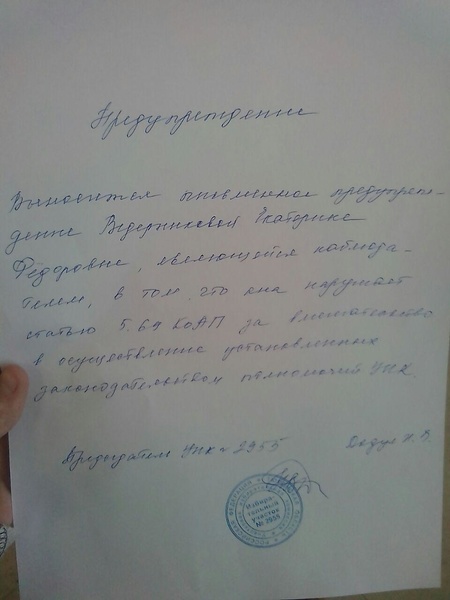 Предупреждение
Выносится письменное предупреж-
дение Ведерниковой Екатерине
Фёдоровне, являющейся наблюда-
телем, в том, что она нарушает
статью 5.69 КоАП за вмешательство
в осуществление установленных
законодательством полномочий УИК.
Председатель УИК № 2955
Избира-
тельный
участок
№ 2955